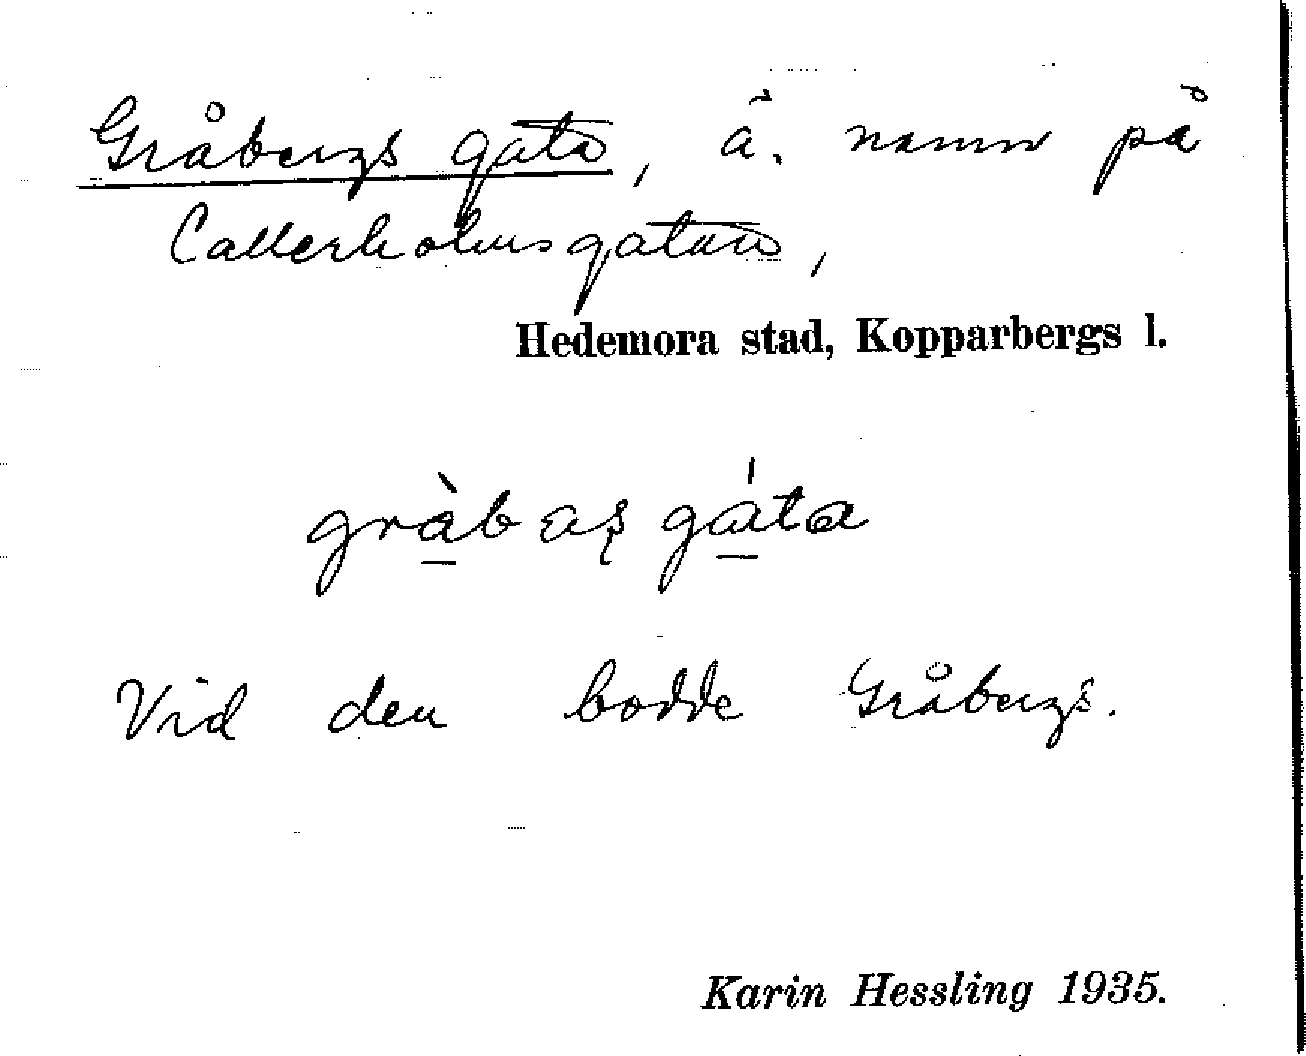 Gråbergs gata, ä. namn på
Callerholmsgatan,
Hedemora stad, Kopparbergs l.
gràbas gáta
Vid den bodde Gråbergs.
Karin Hessling 1935.